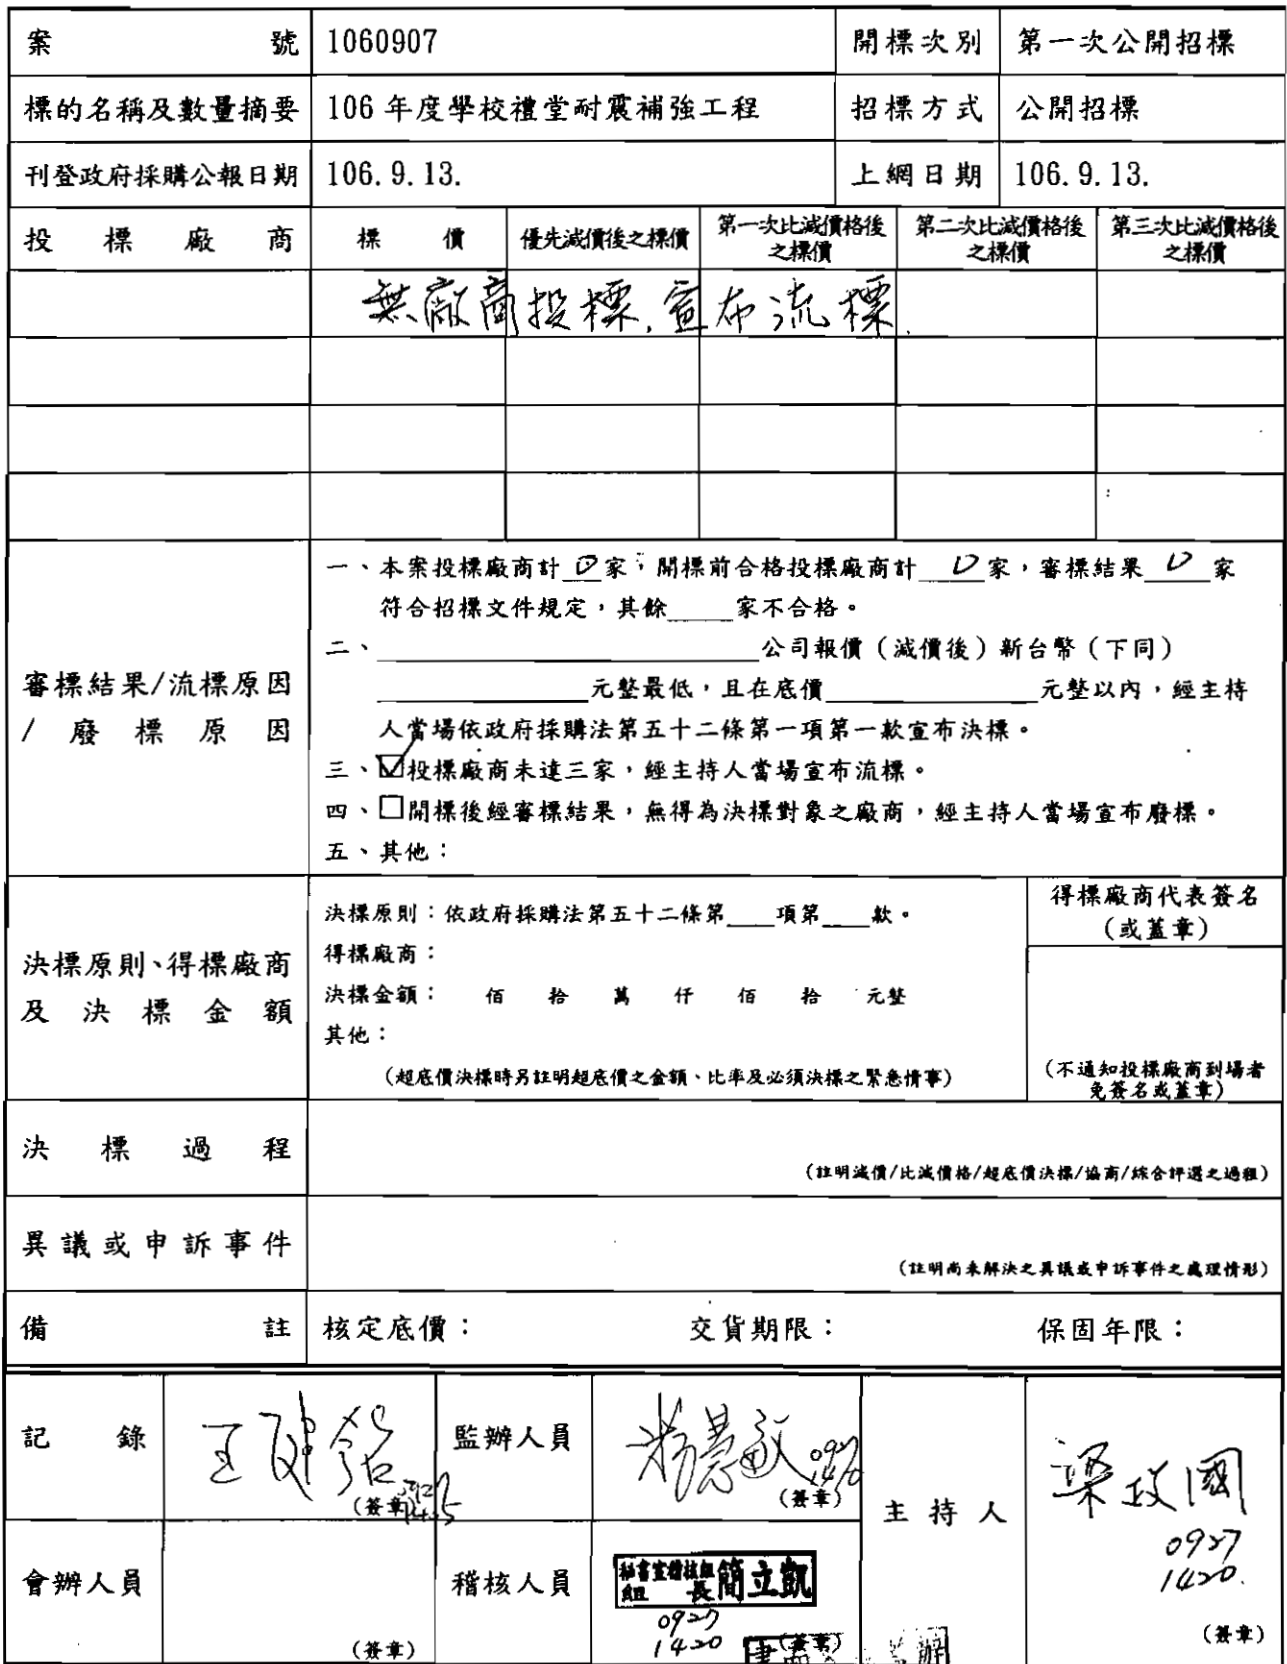 案號 1060907 開標次別 第一次公開招標
標的名稱及數量摘要 106 年度學校禮堂耐震補強工程 招標方式 公開招標
刊登政府採購公報日期 106. 9. 13. 上網日期 106. 9. 13.
投標廠商 標價 優先減價後之標價 第一次比減價格後之標價 第二次比減價格後之標價 第三次比減價格後之標價
無廠商投標,宣布流標.
審標結果/流標原因/廢標原因
一、本案投標廠商計 0 家,開標前合格投標廠商計 0 家,審標結果 0 家
符合招標文件規定,其餘____家不合格。
二、____公司報價(減價後)新台幣(下同)
____元整最低,且在底價____元整以內,經主持
人當場依政府採購法第五十二條第一項第一款宣布決標。
三、☑投標廠商未達三家,經主持人當場宣布流標。
四、□開標後經審標結果,無得為決標對象之廠商,經主持人當場宣布廢標。
五、其他:
決標原則、得標廠商及決標金額
決標原則:依政府採購法第五十二條第____項第____款。
得標廠商:
決標金額: 佰 拾 萬 仟 佰 拾 元整
其他:
(超底價決標時另註明超底價之金額、比率及必須決標之緊急情事)
得標廠商代表簽名
(或蓋章)
(不通知投標廠商到場者
免簽名或蓋章)
決標過程
(註明減價/比減價格/超底價決標/協商/綜合評選之過程)
異議或申訴事件
(註明尚未解決之異議或申訴事件之處理情形)
備註 核定底價: 交貨期限: 保固年限:
記錄 (簽章)
監辦人員 (簽章)
主持人 梁政國
0927
1420.
(簽章)
會辦人員 (簽章)
稽核人員 秘書室稽核組
組長 簡立凱
0927
1420
(簽章)